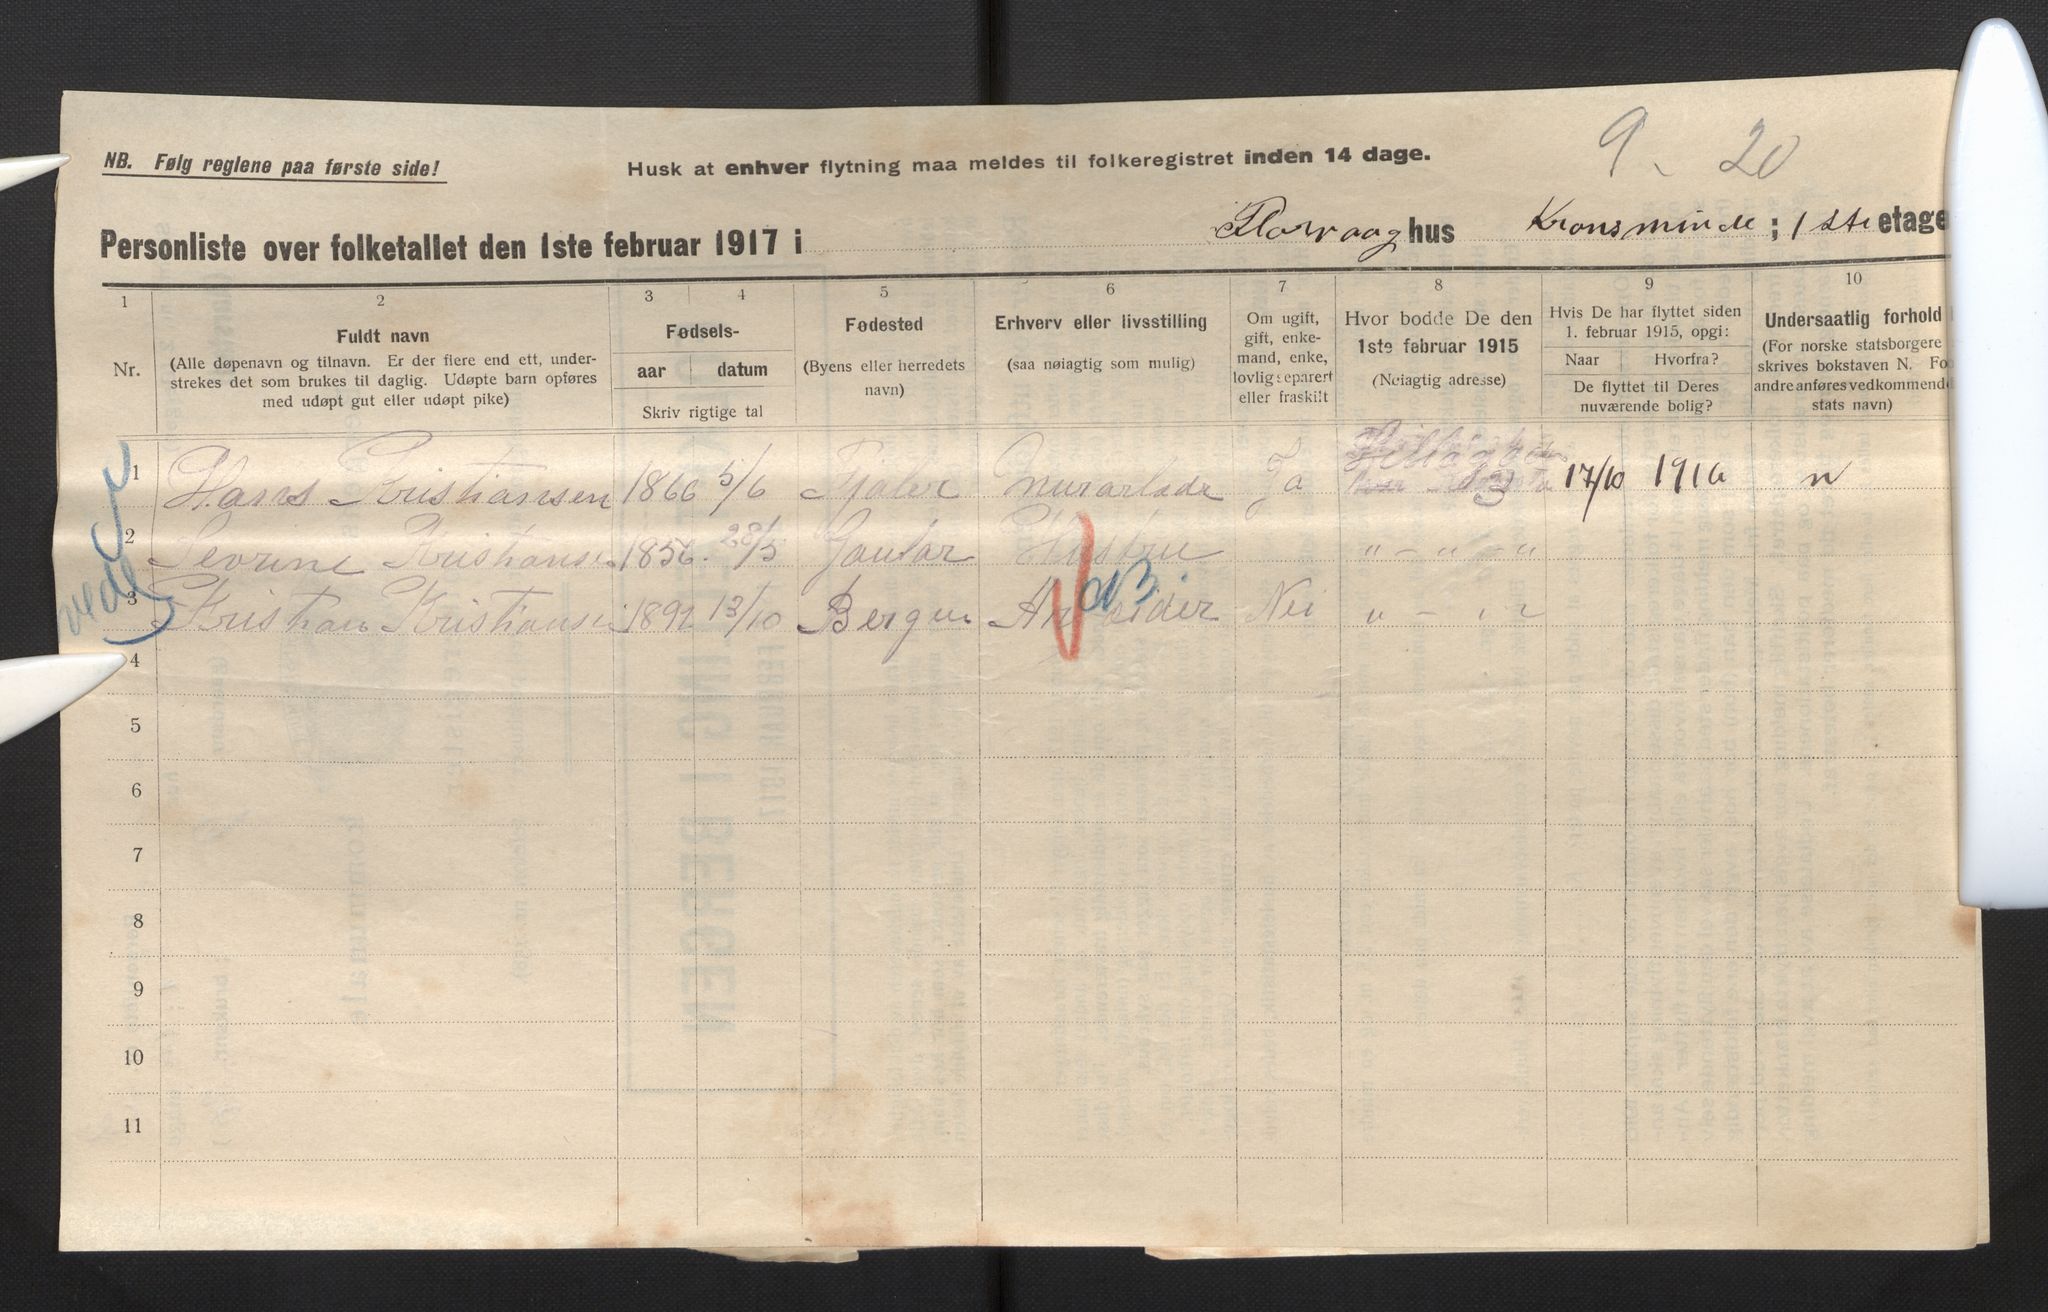 9 - 20
NB. Følg reglene paa første side!
Husk at enhver flytning maa meldes til folkeregistret inden 14 dage.
Personliste over folketallet den 1ste februar 1917 i Florvaag hus Kronsminde; 1ste etage
1 2 3 4 5 6 7 8 9 10
Nr.
Fuldt navn
(Alle døpenavn og tilnavn. Er der flere end ett, under-
strekes det som brukes til daglig. Udøpte barn opføres
med udøpt gut eller udøpt pike)
Fødsels-
aar datum
Skriv rigtige tal
Fødested
(Byens eller herredets
navn)
Erhverv eller livsstilling
(saa nøiagtig som mulig)
Om ugift,
gift, enke-
mand, enke,
lovlig separert
eller fraskilt
Hvor bodde De den
1ste februar 1915
(Nøiagtig adresse)
Hvis De har flyttet siden
1. februar 1915, opgi:
Naar Hvorfra?
De flyttet til Deres
nuværende bolig?
Undersaatlig forhold
(For norske statsborgere
skrives bokstaven N. Fo
andre anføres vedkommende
stats navn)
1 Hans Kristiansen 1866 5/6 Fjaler Murarbade Ja 13 17/10 1916 n
2 Sevrine Kristianse 1856 28/5 Gaular Hustru " - " - "
3 Kristian Kristianse 1892 13/10 Bergen Arbeider Nei " - " "
4
5
6
7
8
9
10
11